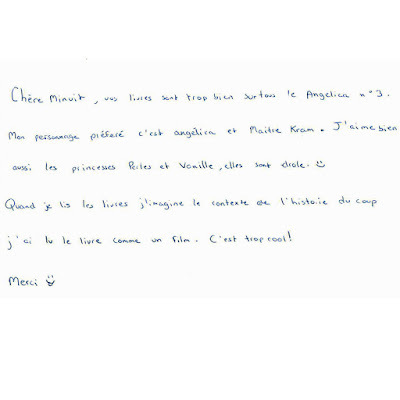 Chère Minuit, vos livres sont trop bien surtous le Angélica n°3.
Mon personnage préferé c'est angélica et Maitre Kram. J'aime bien
aussi les princesses Perles et Vanille, elles sont drole. ☺
Quand je lis les livres j'imagine le contexte de l'histoire du coup
j'ai lu le livre comme un film. C'est trop cool!
Merci ☺